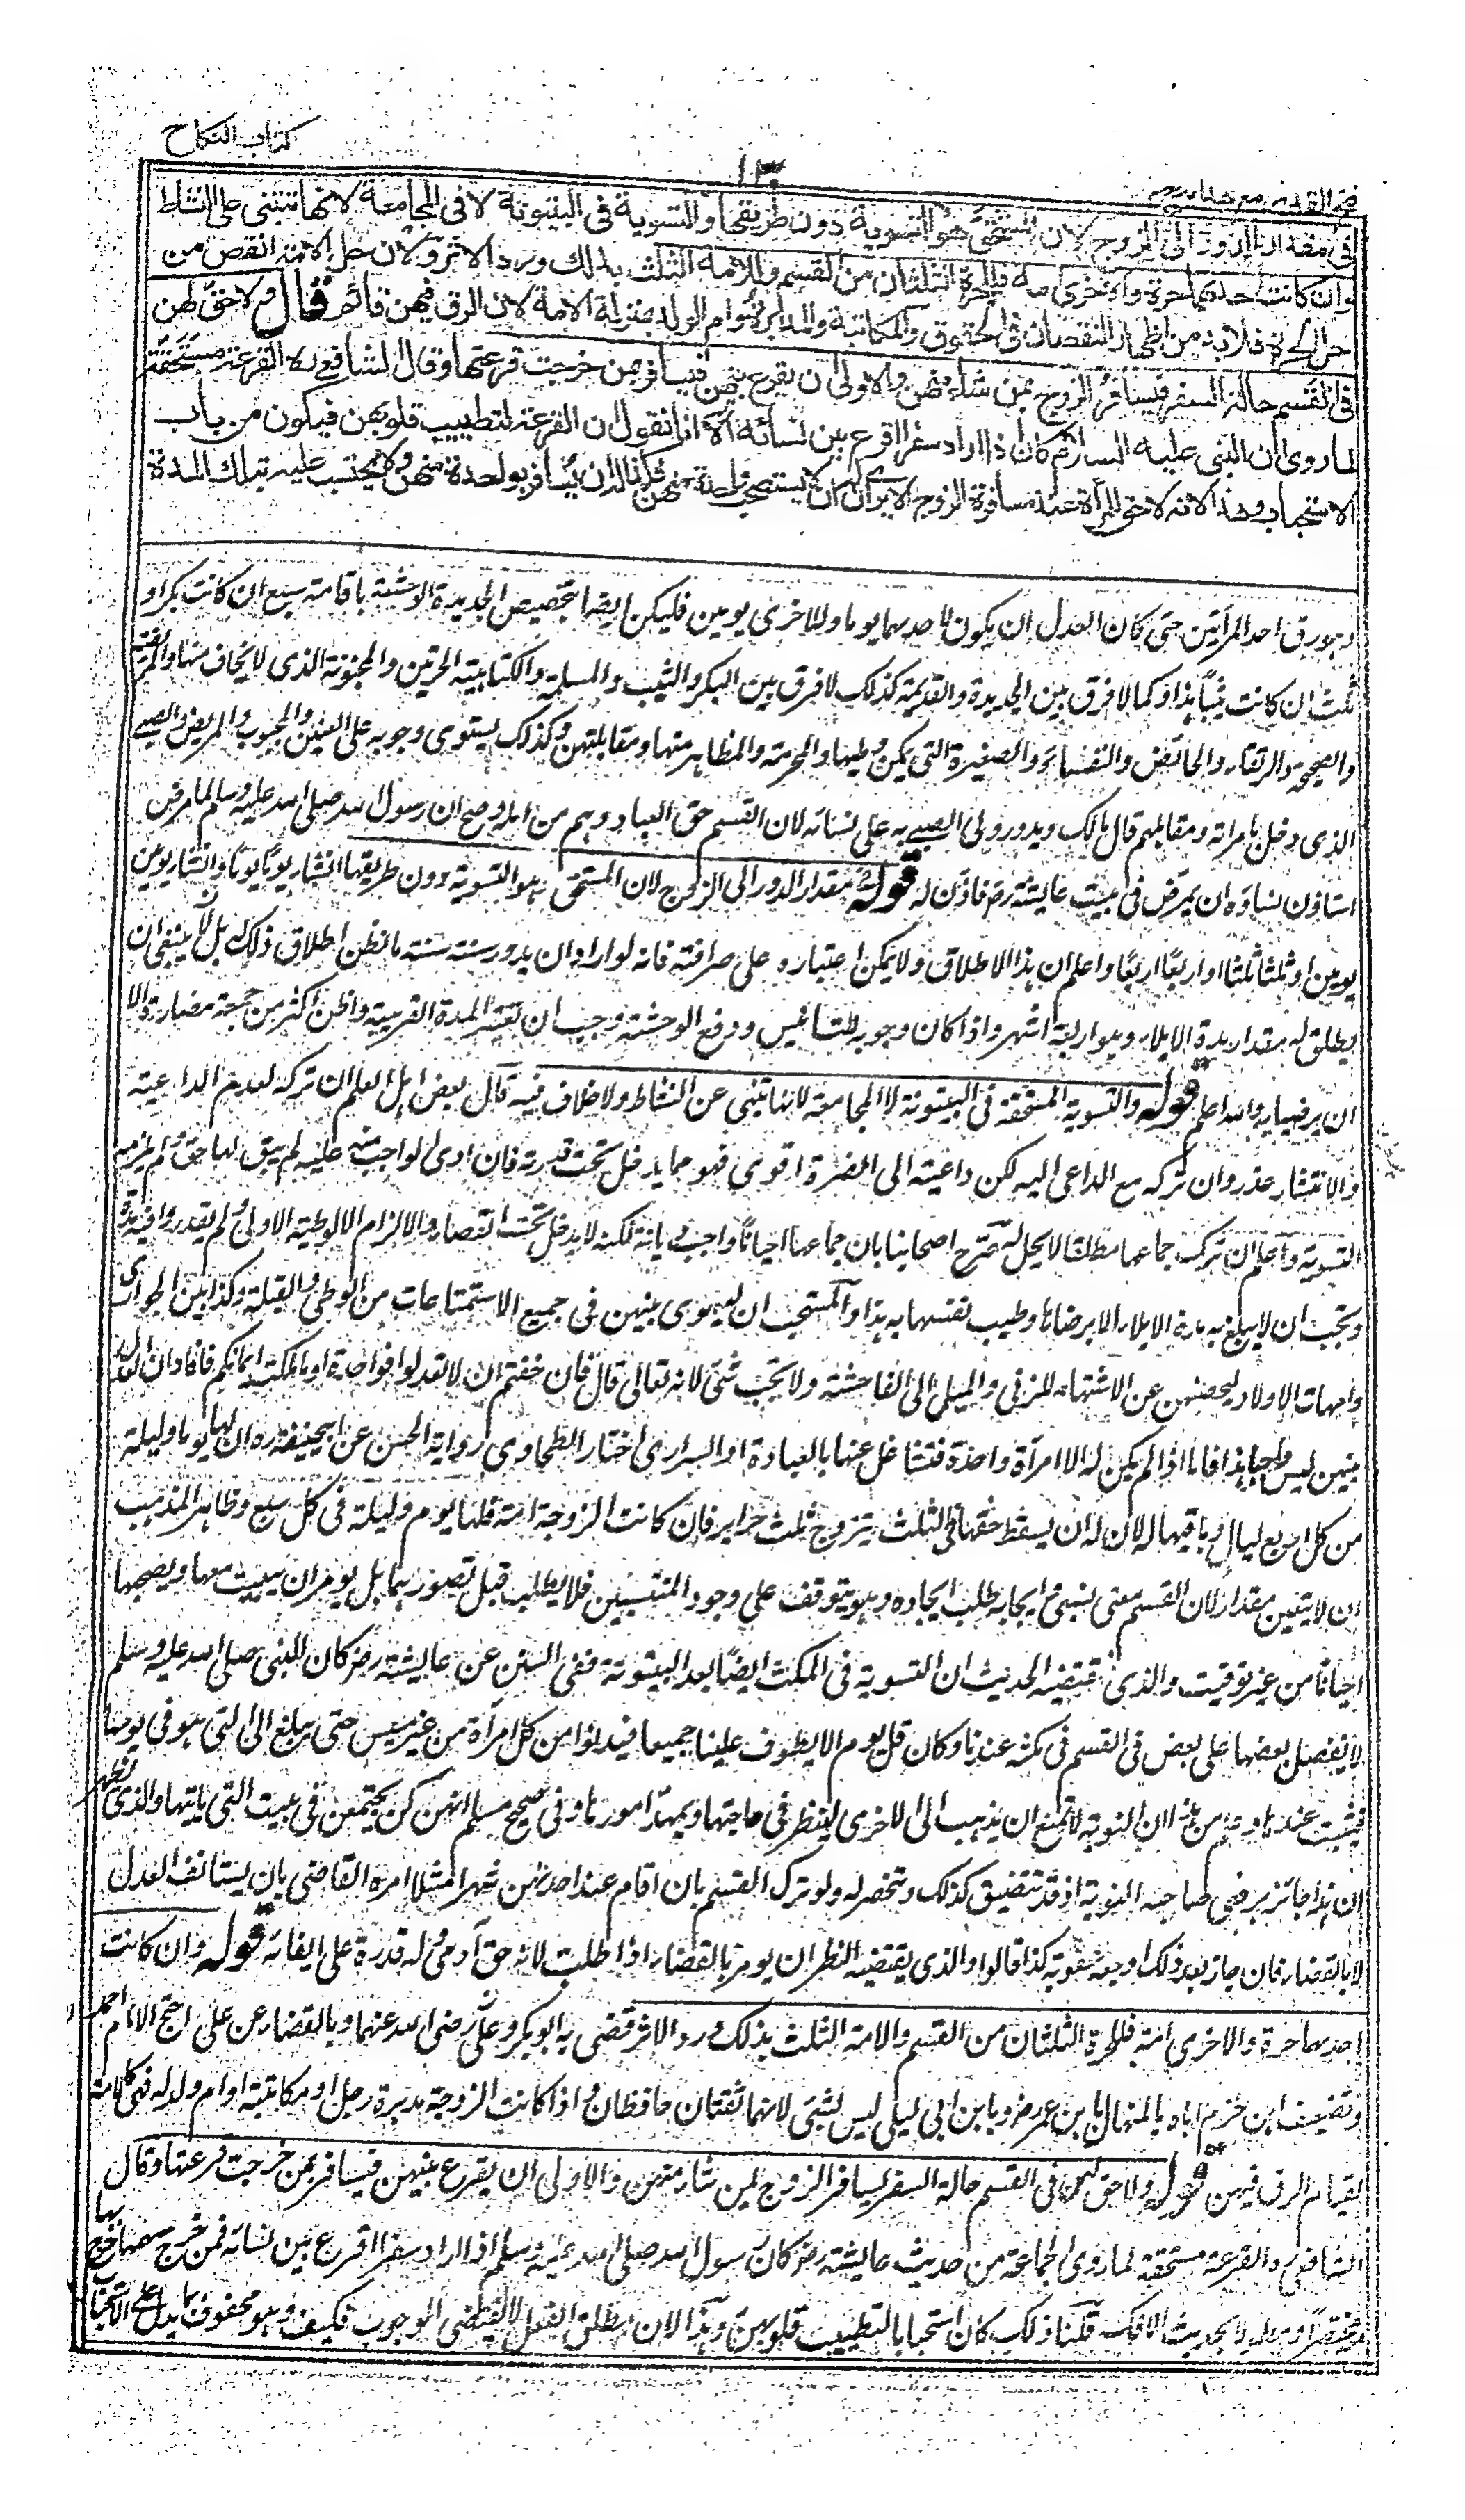 كتاب النكاح
١٣٠
فتح القدير مع هدايه
فى مقدار الدور الى الزوج لان المستحق هو التسوية دون طريقها والتسوية فى البيتوتة لا فى المجامعة لانها تبتنى على النشاط
وان كانت احدٰهما حرة والاخرى امة فللحرة الثلثان من القسم وللامة الثلث بذلك ورد الاثر ولان حل الامة انقص من
حل الحرة فلا بد من اظهار النقصان فى الحقوق والمكاتبة والمدبرة وام الولد بمنزلة الامة لان الرق فيهن قائم قال ولا حق لهن
فى القسم حالة السفر فيسافر الزوج بمن شاء منهن والاولى ان يقرع بينهن فيسافر بمن خرجت قرعتها وقال الشافعى ره القرعة مستحقة
لما روى ان النبى عليه السلام كان اذا اراد سفرا اقرع بين نسائه الا انا نقول ان القرعة لتطييب قلوبهن فيكون من باب
الاستحباب وهذا لانه لا حق للمرأة عند مسافرة الزوج الا يرى ان له ان لا يستصحب واحدة منهن فكذا له ان يسافر بواحدة منهن ولا يحتسب عليه بتلك المدة
وجور ق احد المرأتين حتى كان العدل ان يكون لاحدىهما يوما وللاخرى يومين فليكن ايضا بتخصيص الجديدة الوحشة باقامة سبع ان كانت بكرا و
ثلث ان كانت ثيبا هذا وكما لا فرق بين الجديدة والقديمة كذلك لا فرق بين البكر والثيب والمسلمة والكتابية الحرتين والمجنونة الذى لا يخاف منها والمريضة
والصحيحة والرتقاء والحائض والنفساء والصغيرة التى يمكن وطيها والمحرمة والمظاهر منها ومقابلتهن وكذلك يستوى وجوبه على العنين والمجبوب والمريض والصبى
الذى دخل بامراته ومقابلهم قال مالك ويدور ولى الصبى به على نسائه لان القسم حق العباد وهم من اهله وصح ان رسول الله صلى الله عليه وسلم لما مرض
استاذن نساؤه ان يمرض فى بيت عايشة رض فاذن له قوله مقدار الدور الى الزوج لان المستحق هو التسوية دون طريقها ان شاء يوما يوما وان شاء يومين
يومين او ثلثا ثلثا او اربعا اربعا واعلم ان هذا الاطلاق ولا يمكن اعتباره على صرافته فانه لو اراد ان يدور سنة سنة ما نظن اطلاق ذلك له بل لا ينبغى ان
يطلق له مقدار مدة الايلاء وهو اربعة اشهر واذا كان وجوبه للتانيس ودفع الوحشة وجب ان تعتبر المدة القريبة واظن اكثر من جمعة مضارة الا
ان يرضيا به والله اعلم قوله والتسوية المستحقة فى البيتوتة لا المجامعة لانها تبتنى عن النشاط ولا خلاف فيه قال بعض اهل العلم ان تركه لعدم الداعية
والانتشار عذر وان تركه مع الداعى اليه لكن داعيته الى الضرة اقوى فهو مما يدخل تحت قدرته فان ادى الواجب منه عليه لم يبق لها حق ولم يلزمه
التسوية واعلم ان ترك جماعها مطلقا لا يحل له صرح اصحابنا بان جماعها احيانا واجب ديانة لكنه لا يدخل تحت القضاء والالزام الا الوطية الاولى ولم يقدروا فيه مدة
ويجب ان لا يبلغ به مدة الايلاء الا برضاها وطيب نفسها به هذا والمستحب ان يسوى بينهن فى جميع الاستمتاعات من الوطى والقبلة وكذا بين الجوارى
وامهات الاولاد ليحصنهن عن الاشتهاء للزنى والميل الى الفاحشة ولا يجب شئ لانه تعالى قال فان خفتم ان لا تعدلوا فواحدة او ما ملكت ايمانكم فافاد ان العدل
بينهن ليس واجبا هذا فاما اذا لم يكن له الا امرأة واحدة فتشاغل عنها بالعبادة او السرارى اختار الطحاوى رواية الحسن عن ابيحنيفة ره ان لها يوما وليلة
من كل اربع ليال وباقيها له لان له ان يسقط حقها فى الثلث بتزوج ثلث حراير فان كانت الزوجة امة فلها يوم وليلة فى كل سبع وظاهر المذهب
ان لا يتعين مقدار لان القسم معنى نسبى فايجابه طلب ايجاده وهو يتوقف على وجود المنتسبين فلا يطلب قبل تصورهما بل يومر ان يبيت معها ويصحبها
احيانا من غير توقيت والذى يقتضيه الحديث ان التسوية فى المكث ايضا بعد البيتوتة ففى السنن عن عايشة رض كان النبى صلى الله عليه وسلم
لا يفضل بعضها على بعض فى القسم فى مكثه عندنا وكان قل يوم الا يطوف علينا جميعا فيدنوا من كل امرأة من غير مسيس حتى يبلغ الى التى هو فى يومها
فيثبت عندها وعلم من هذا ان النوبة لا تمنع ان يذهب الى الاخرى لينظر فى حاجتها ويمهد امورها وفى صحيح مسلم انهن كن يجتمعن فى بيت التى ياتيها والذى يظهر
ان هذا جائز برضى صاحبة النوبة اذ قد تتضيق لذلك وتنحصر له ولو ترك القسم بان اقام عند احدىهن شهرا مثلا امره القاضى بان يستانف العدل
لا بالقضاء فان جاز بعد ذلك اوجعه عقوبة كذا قالوا والذى يقتضيه النظر ان يومر بالقضاء اذا طلبت لانه حق آدمى وله قدرة على ايفائه قوله وان كانت
احدىهما حرة والاخرى امة فللحرة الثلثان من القسم والامة الثلث بذلك ورد الاثر قضى به ابو بكر وعلى رضى الله عنهما وبالقضاء عن على احتج الامام احمد
وتضعيف ابن حزم اياه بالمنهال بن عمر وبابن ابى ليلى ليس بشئ لانهما ثقتان حافظان واذا كانت الزوجة مدبرة رجل او مكاتبة او ام ولد له فهى كالامة
لقيام الرق فيهن قوله ولا حق لهن فى القسم حالة السفر ليسافر الزوج لمن شاء منهن والاولى ان يقرع بينهن فيسافر بمن خرجت قرعتها وقال
الشافعى ره القرعة مستحقة لما روى الجماعة من حديث عايشة رض كان رسول الله صلى الله عليه وسلم اذا اراد سفرا اقرع بين نسائه فمن خرج سهمها خرج بها
مختصرا ومطولا بحديث الافك قلنا ذلك كان استحبابا لتطييب قلوبهن وهذا لان مطلق الفعل لا يقتضى الوجوب فكيف وهو محفوف بما يدل على الاستحباب